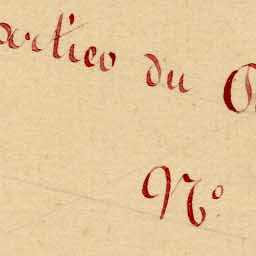 artico du
Nº